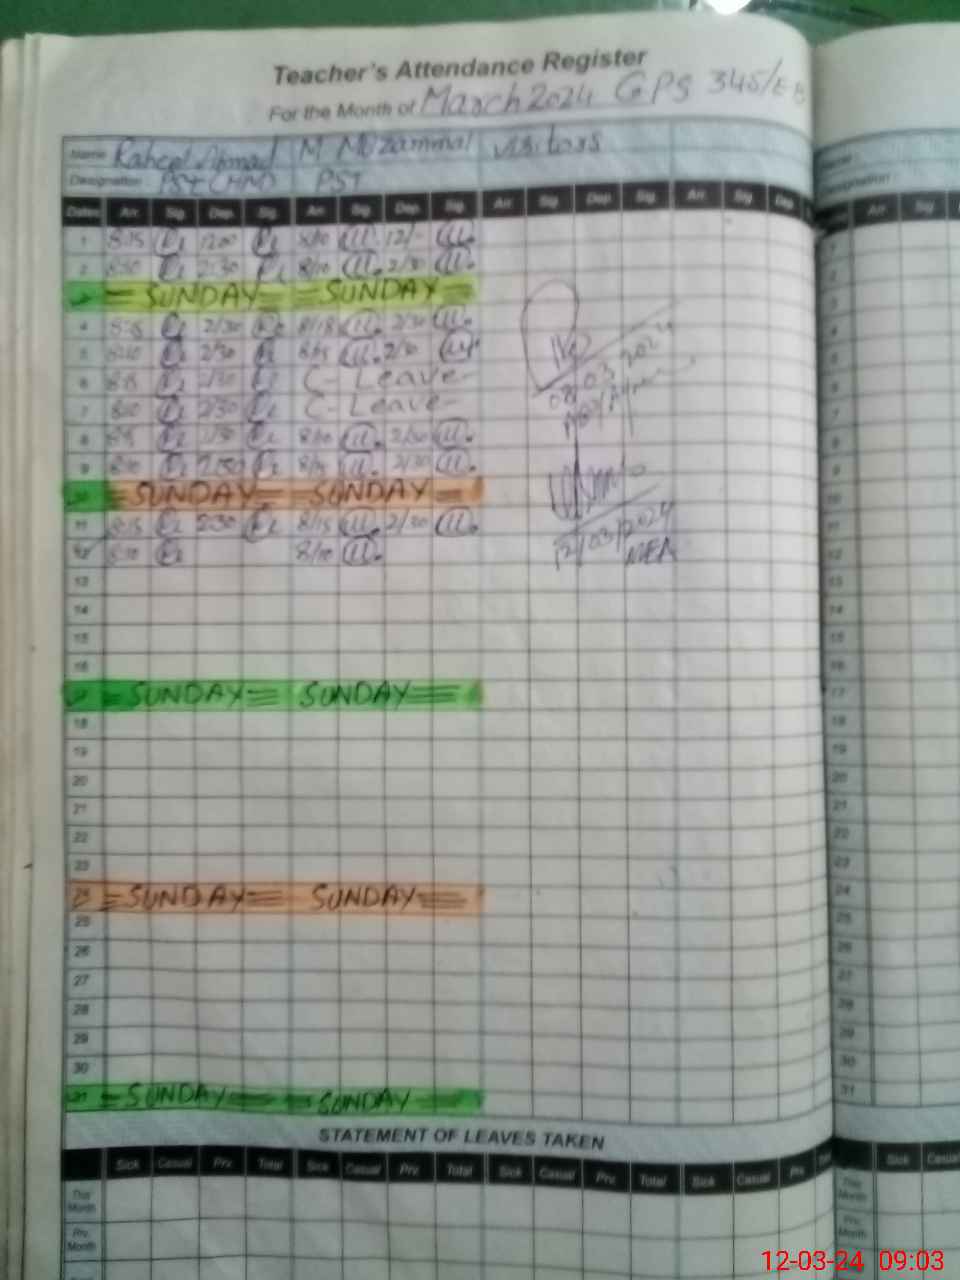 Teacher's Attendance Register
For the Month of March 2024 GPS 345/EB
Name Raheel Ahmad M Muzammal visitors
Designation PST (HM) PST
Dates Arr. Sig. Dep. Sig. Arr. Sig. Dep. Sig. Arr. Sig. Dep. Sig. Arr. Sig. Dep.
1 8:15 12:00 8/10 12/-
2 2:30 8/10 2/30
SUNDAY SUNDAY
4 8:15 2/30 8/15 2/30
5 2/30 8/15 2/30
6 8:15 2/30 C- Leave-
7 2/30 C- Leave-
8 8/10 2/30
9 8/15 2/30
SUNDAY SUNDAY
11 8:15 2:30 8/15 2/30
12 8:10 8/10
08/03/2024
12/03/2024
MEA
13
14
15
16
17 SUNDAY SUNDAY
18
19
20
21
22
23
24 SUNDAY SUNDAY
25
26
27
28
29
30
31 SUNDAY SUNDAY
STATEMENT OF LEAVES TAKEN
Sick Casual Prv. Total Sick Casual Prv. Total Sick Casual Prv. Total Sick Casual Prv.
This Month
Prv. Month
Designation :
Arr. Sig.
1
2
3
4
5
6
7
8
9
10
11
12
13
14
15
16
17
18
19
20
21
22
23
24
25
26
27
28
29
30
31
Sick Casual
This Month
Prv. Month
12-03-24 09:03